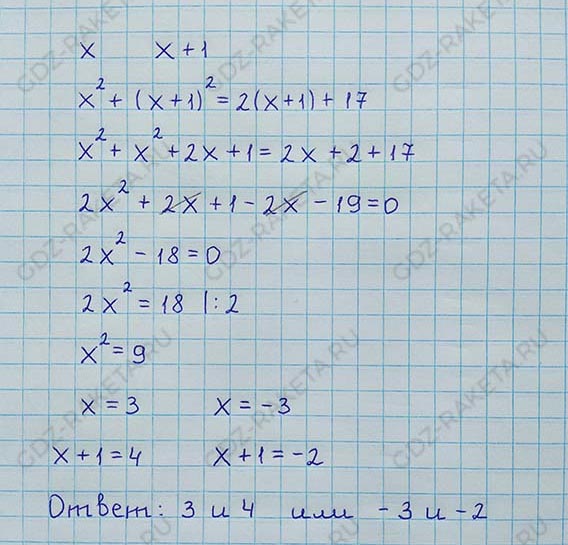 x x+1
x² + (x+1)² = 2(x+1) + 17
x² + x² + 2x + 1 = 2x + 2 + 17
2x² + 2x + 1 - 2x - 19 = 0
2x² - 18 = 0
2x² = 18 |:2
x² = 9
x = 3 x = -3
x+1 = 4 x+1 = -2
Ответ: 3 и 4 или -3 и -2
GDZ-RAKETA.RU